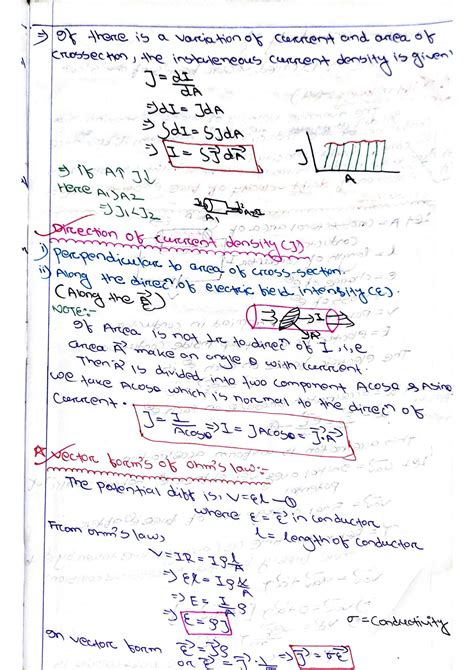 ⇒ If there is a variation of current and area of
crossection, the instateneous current density is given
J = dI/dA
⇒ dI = JdA
⇒ ∫dI = ∫JdA
⇒ I = ∫J⃗ dA⃗
J
A
⇒ if A↑ J↓
Here A1>A2
⇒ J1<J2
A1
Direction of current density (J)
i) perpendicular to area of cross-section.
ii) Along the direcⁿ of electric field intensity (E).
(Along the E⃗)
NOTE:-
I
If Area is not ⊥r to direcⁿ of I, i.e
area A⃗ make an angle θ with current.
Then A⃗ is divided into two component Acosθ & Asinθ
we take Acosθ which is normal to the direcⁿ of
current.
J = I/Acosθ ⇒ I = JAcosθ = J⃗.A⃗
Vector form's of ohm's law:-
The potential diff is, V=El —①
where E = E⃗ in conductor
l = length of conductor
From ohm's law,
V = IR = Iρ l/A
⇒ El = Iρ l/A
⇒ E = I/A ρ
⇒ E = ρJ
σ = Conductivity
In vector form E⃗ = J⃗ρ
or E⃗ = J⃗ . 1/σ ⇒ J⃗ = σE⃗